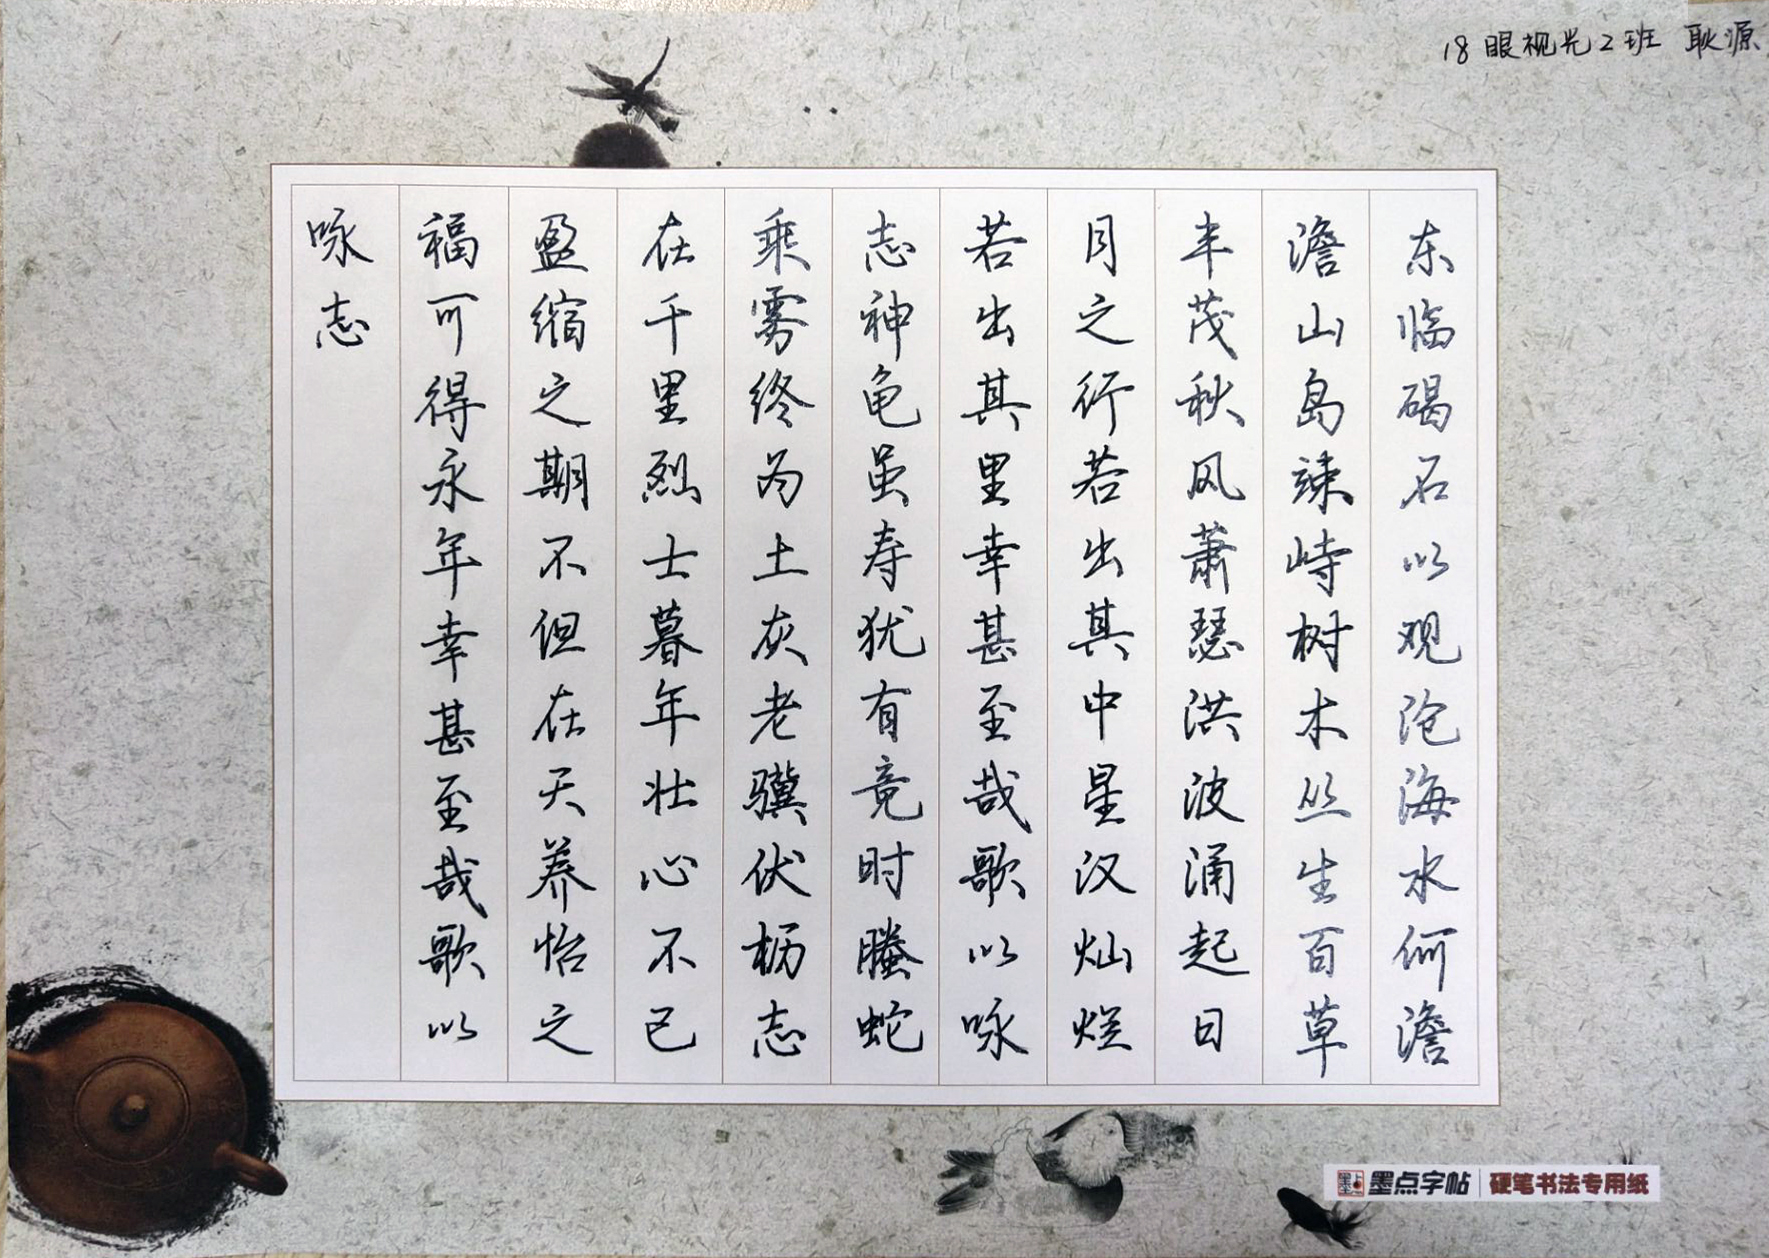 18眼视光2班 耿源
东临碣石以观沧海水何澹
澹山岛竦峙树木丛生百草
丰茂秋风萧瑟洪波涌起日
月之行若出其中星汉灿烂
若出其里幸甚至哉歌以咏
志神龟虽寿犹有竟时螣蛇
乘雾终为土灰老骥伏枥志
在千里烈士暮年壮心不已
盈缩之期不但在天养怡之
福可得永年幸甚至哉歌以
咏志
墨点字帖 硬笔书法专用纸